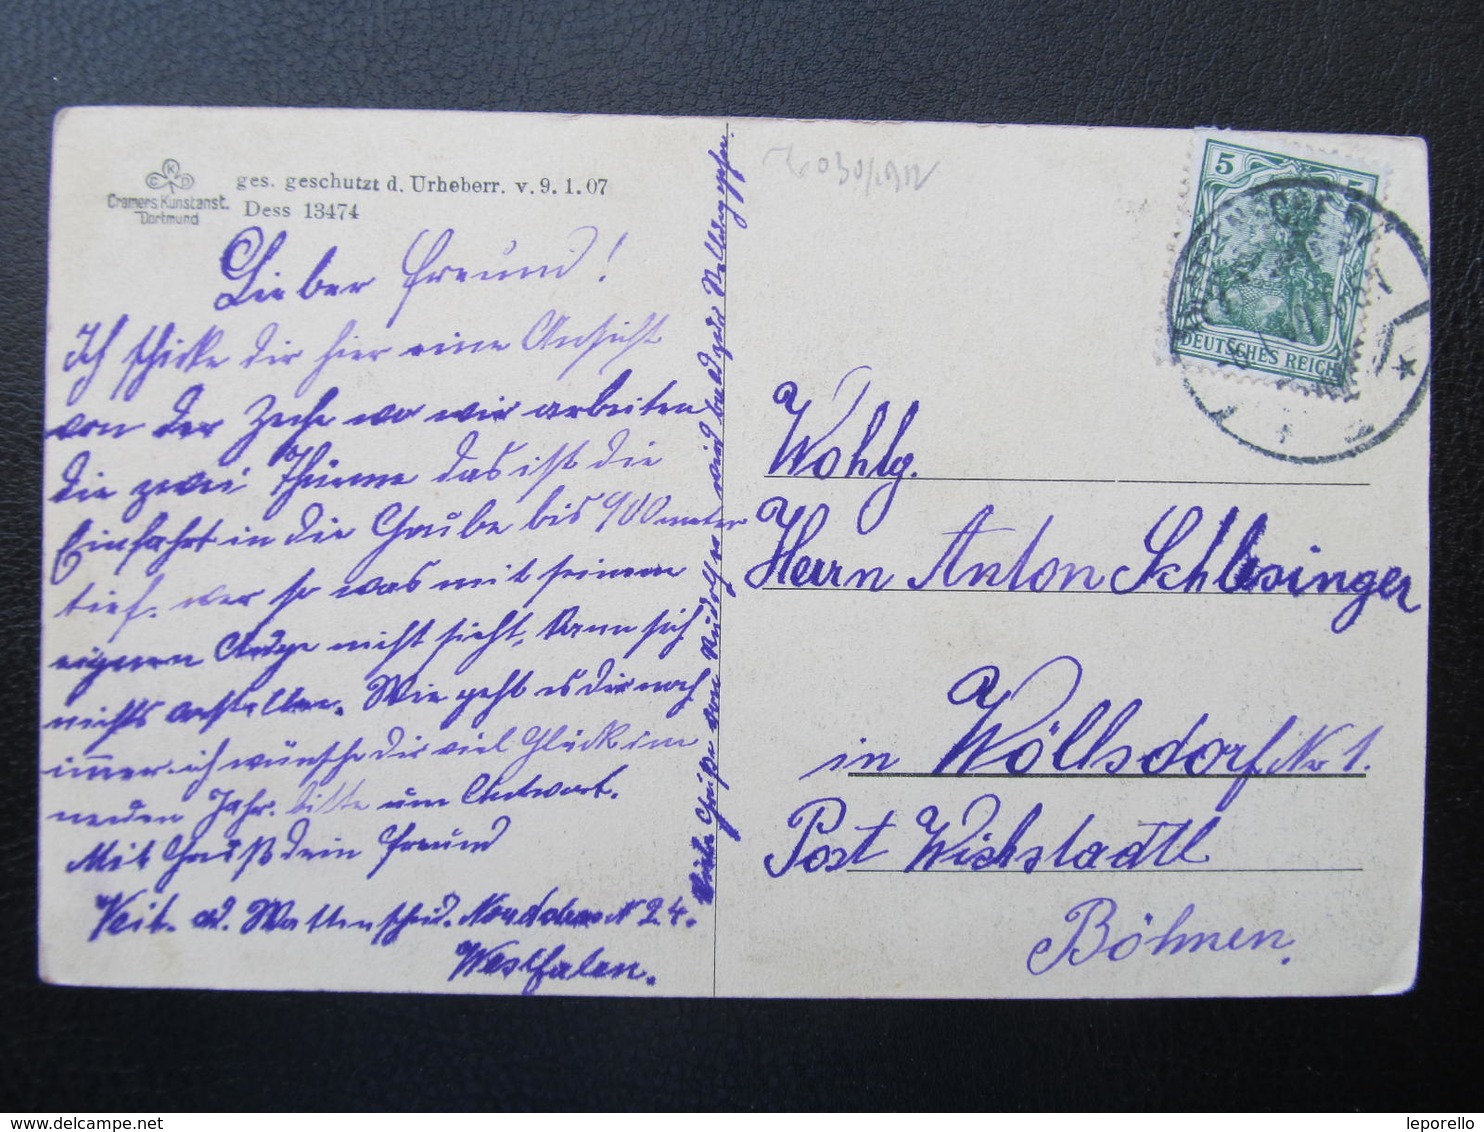 Cramers Kunstanst.
Dortmund
ges. geschutzt d. Urheberr. v. 9. 1. 07
Dess 13474
Lieber Freund!
Ich schicke dir hier eine Ansicht
von der Zeche wo wir arbeiten
die zwei Thürme das ist die
Einfahrt in die Grube bis 900 meter
tief. wer so was mit seinem
eigenen Auge nicht sieht, kann sich
nichts vorstellen. Wie geht es dir noch
immer ich wünsche dir viel Glück im
neuen Jahr. bitte um Antwort.
Mit Gruß dein Freund
Veit. Wattenscheid. N 24.
Westfalen.
Viele Grüße von Rudolf
5 5
DEUTSCHES REICH
Wohlg.
Herrn Anton Schlesinger
in Wöllsdorf Nr 1.
Post Wichstadtl
Böhmen.
delcampe.net
leporello